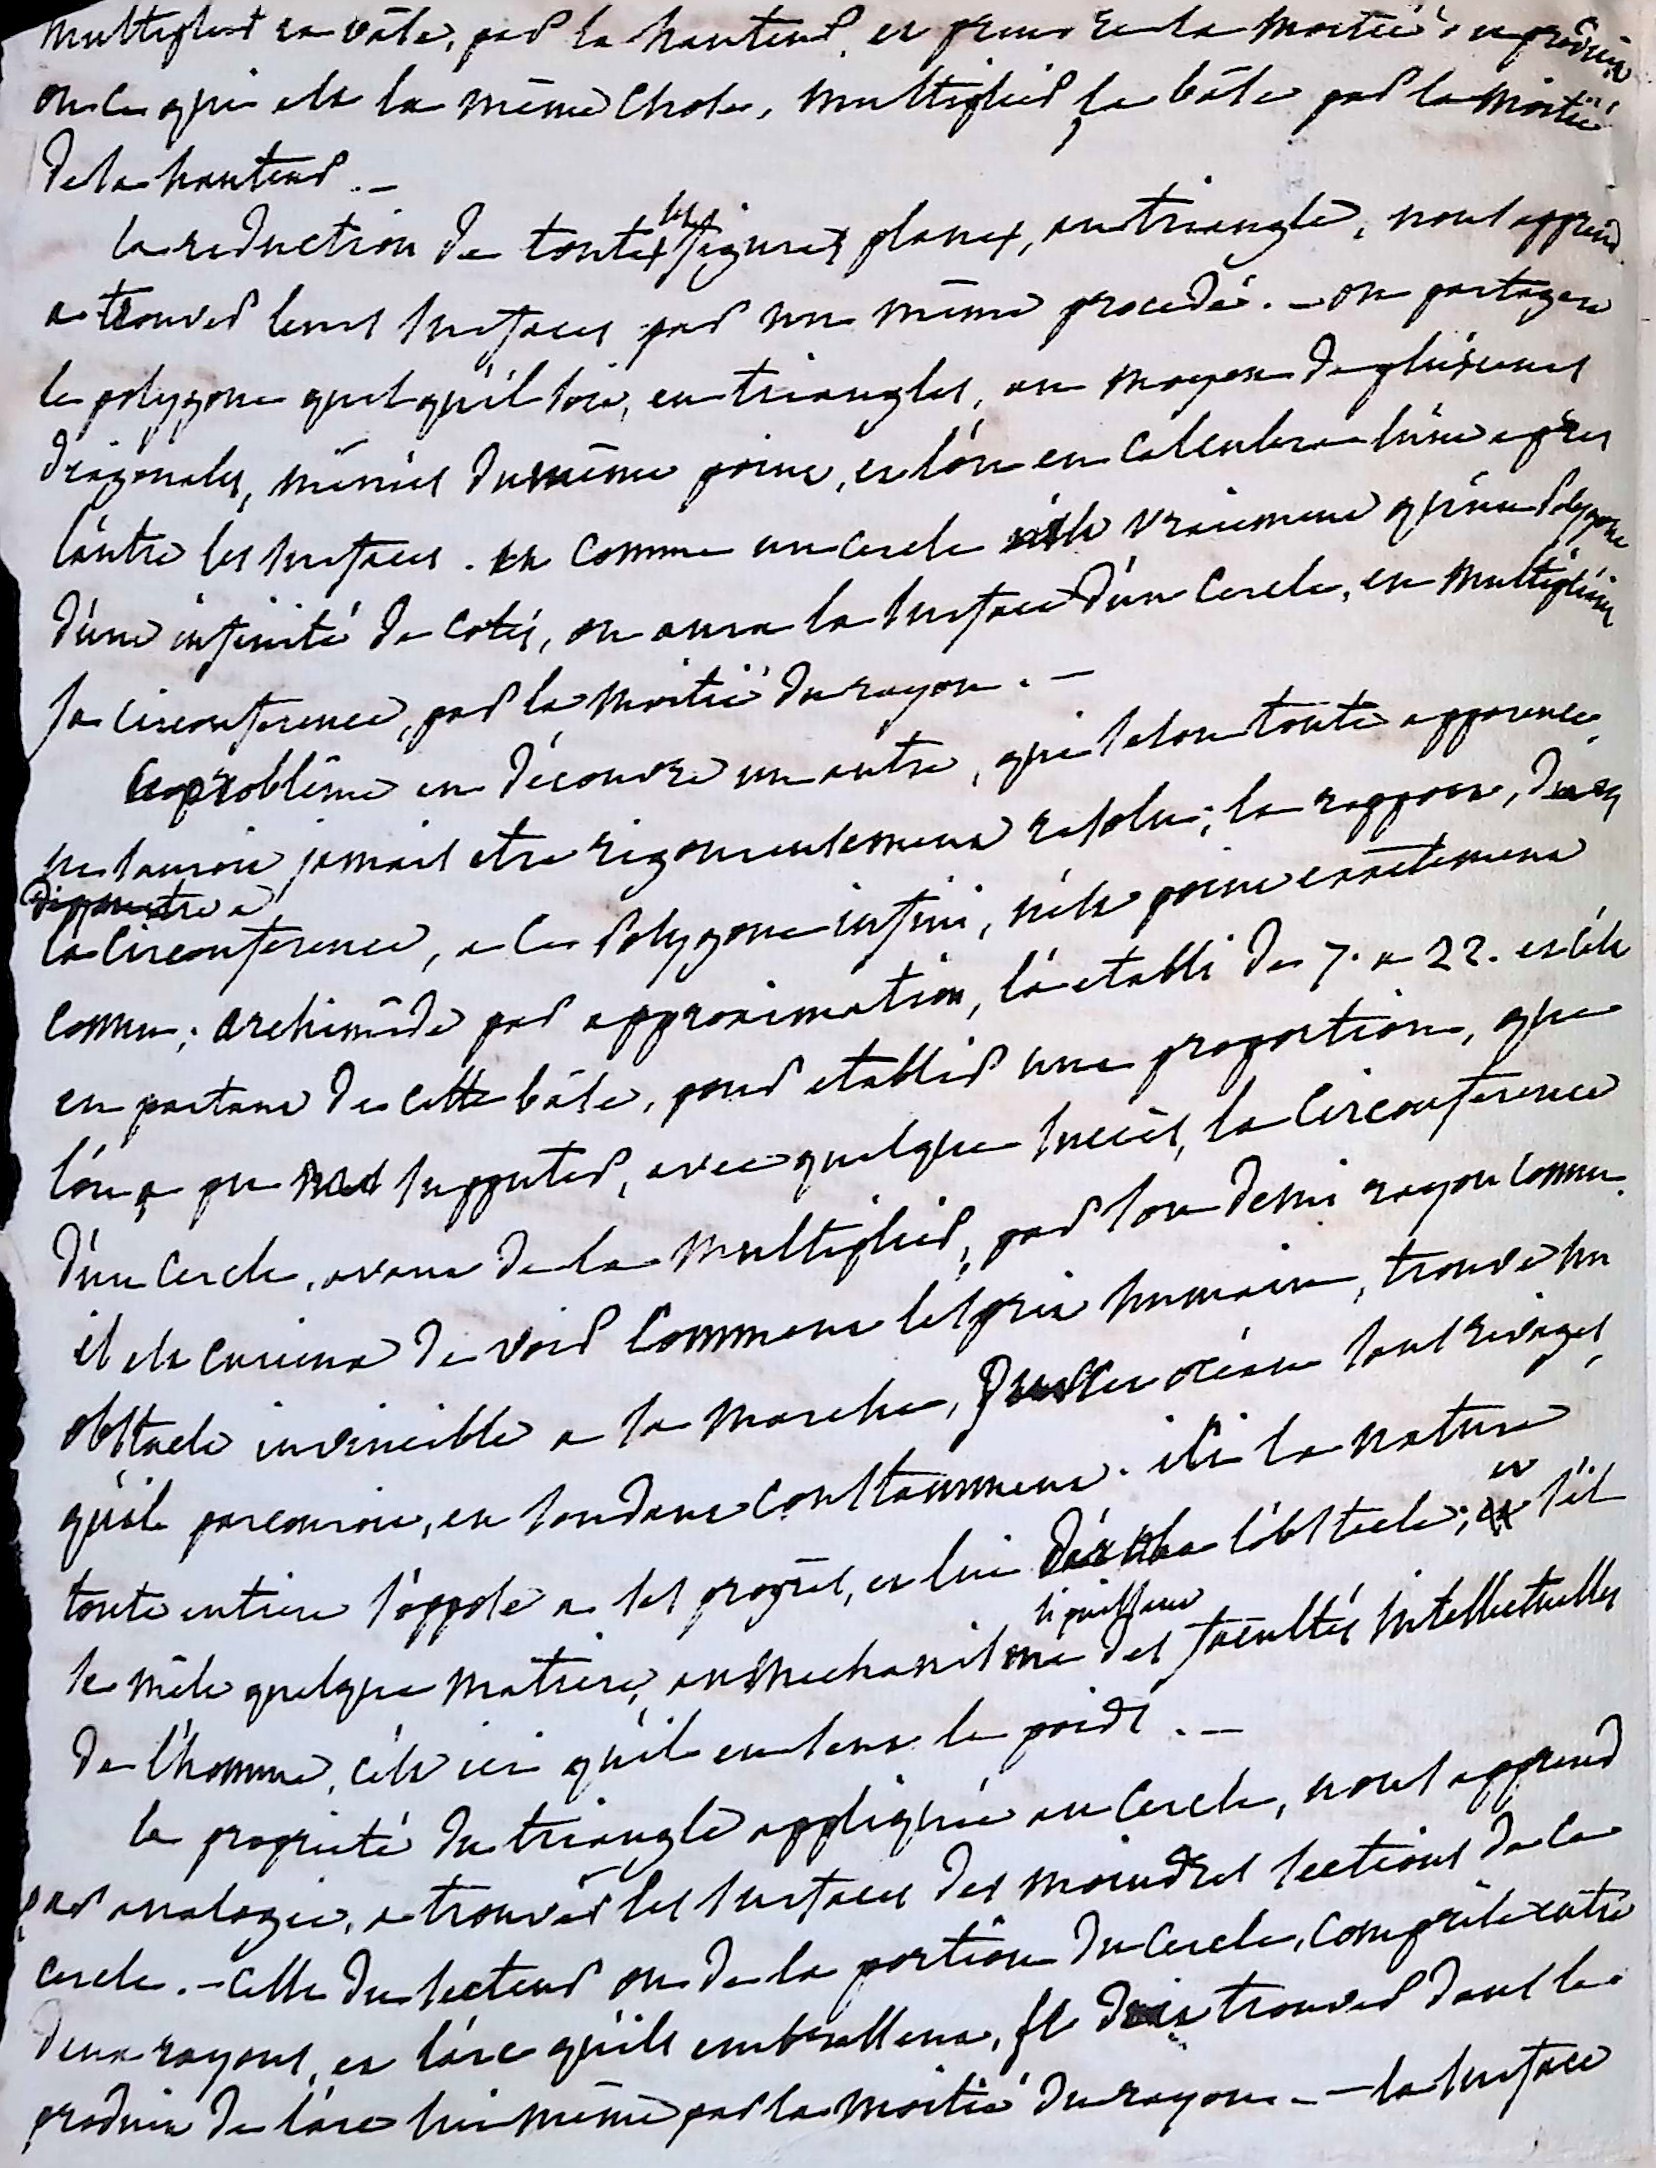 multiplier sa bâse, par la hauteur, et prendre la moitié du produit
ou ce qui est la même chose, multiplier la bâse par la moitié
de la hauteur. —
la reduction de toutes les figures planes, au triangle, nous apprend
a trouver leurs surfaces par un même procedé. — on partagera
le polygone quel qu'il soit, en triangles, au moyen de plusieurs
diagonales, menées du même point, et l'on en calculera l'une apres
l'autre les surfaces. et comme un cercle n'est vraiment qu'un polygone
d'une infinité de cotés, on aura la surface d'un cercle, en multipliant
sa circonference, par la moitié du rayon. —
Ce problême en découvre un autre, qui selon toute apparence,
ne sauroit jamais etre rigoureusement resolu; le rapport, du
diametre a
la circonference, a ce polygone infini, n'est point exactement
connu; archimêde par approximation, l'a etabli de 7. a 22. et c'est
en partant de cette bâse, pour etablir une proportion, que
l'on a pu supputer, avec quelque succès, la circonference
d'un cercle, avant de la multiplier, par son demi rayon connu.
il est curieux de voir comment l'esprit humain, trouve un
obstacle invincible a sa marche, sur cet océan sans rivages,
qu'il parcouroit, en sondant constamment. ici la nature
toute entiere s'oppose a ses progrès, et lui l'obstacle; et s'il
se mêle quelque matiere, au mechanisme si puissant des facultés intellectuelles
de l'homme, c'est ici qu'il en sent le poids. —
la propriété du triangle appliquée au cercle, nous apprend
par analogie, a trouver les surfaces des moindres sections de ce
cercle. — celle du secteur ou de la portion du cercle, comprise entre
deux rayons, et l'arc qu'ils embrassent, se doit trouver dans le
produit de l'arc lui même par la moitié du rayon. — la surface